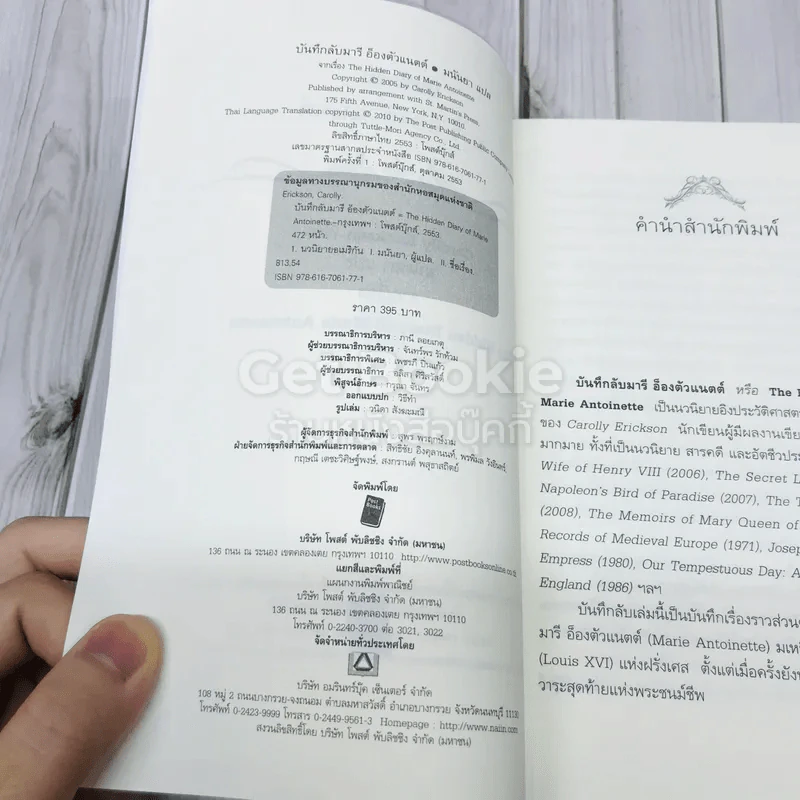 บันทึกลับมารี อ็องตัวแนตต์ ● มนันยา แปล
จากเรื่อง The Hidden Diary of Marie Antoinette
Copyright © 2005 by Carolly Erickson
Published by arrangement with St. Martin's Press.
175 Fifth Avenue, New York, N.Y. 10010.
Thai Language Translation copyright © 2010 by The Post Publishing Public Company
through Tuttle-Mori Agency Co., Ltd.
ลิขสิทธิ์ภาษาไทย 2553 : โพสต์บุ๊กส์
เลขมาตรฐานสากลประจำหนังสือ ISBN 978-616-7061-77-1
พิมพ์ครั้งที่ 1 : โพสต์บุ๊กส์, ตุลาคม 2553
ข้อมูลทางบรรณานุกรมของสำนักหอสมุดแห่งชาติ
Erickson, Carolly
บันทึกลับมารี อ็องตัวแนตต์ = The Hidden Diary of Marie
Antoinette.--กรุงเทพฯ : โพสต์บุ๊กส์, 2553.
472 หน้า.
1. นวนิยายอเมริกัน I. มนันยา, ผู้แปล. II. ชื่อเรื่อง.
813.54
ISBN 978-616-7061-77-1
ราคา 395 บาท
บรรณาธิการบริหาร : ภานี ลอยเกตุ
ผู้ช่วยบรรณาธิการบริหาร : จันทร์พร รักท้วม
บรรณาธิการพิเศษ : เพชรภี ปิ่นแก้ว
ผู้ช่วยบรรณาธิการ : อลิสา ศิริสวัสดิ์
พิสูจน์อักษร : กรุณา จันทร
ออกแบบปก : วิธีทำ
รูปเล่ม : วนิดา สังฆะมณี
ผู้จัดการธุรกิจสำนักพิมพ์ : สุพร พาฤทธิ์งาม
ฝ่ายจัดการธุรกิจสำนักพิมพ์และการตลาด : สิทธิชัย อิงคุลานนท์, พรพิมล
กฤษณี เตชะวิศิษฐ์พงษ์, สงกรานต์ พสุธาสถิตย์
จัดพิมพ์โดย
Post Books
บริษัท โพสต์ พับลิชชิง จำกัด (มหาชน)
136 ถนน ณ ระนอง เขตคลองเตย กรุงเทพฯ 10110 http://www.postbooksonline.co.th
แยกสีและพิมพ์ที่
แผนกงานพิมพ์พาณิชย์
บริษัท โพสต์ พับลิชชิง จำกัด (มหาชน)
136 ถนน ณ ระนอง เขตคลองเตย กรุงเทพฯ 10110
โทรศัพท์ 0-2240-3700 ต่อ 3021, 3022
จัดจำหน่ายทั่วประเทศโดย
บริษัท อมรินทร์บุ๊ค เซ็นเตอร์ จำกัด
108 หมู่ 2 ถนนบางกรวย-จงถนอม ตำบลมหาสวัสดิ์ อำเภอบางกรวย จังหวัดนนทบุรี 11130
โทรศัพท์ 0-2423-9999 โทรสาร 0-2449-9561-3 Homepage : http://www.naiin.com
สงวนลิขสิทธิ์โดย บริษัท โพสต์ พับลิชชิง จำกัด (มหาชน)
คำนำสำนักพิมพ์
บันทึกลับมารี อ็องตัวแนตต์ หรือ The
Marie Antoinette เป็นนวนิยายอิงประวัติศาสต
ของ Carolly Erickson นักเขียนผู้มีผลงานเขีย
มากมาย ทั้งที่เป็นนวนิยาย สารคดี และอัตชีวประ
Wife of Henry VIII (2006), The Secret L
Napoleon's Bird of Paradise (2007), The T
(2008), The Memoirs of Mary Queen of
Records of Medieval Europe (1971), Josep
Empress (1980), Our Tempestuous Day: A
England (1986) ฯลฯ
บันทึกลับเล่มนี้เป็นบันทึกเรื่องราวส่วน
มารี อ็องตัวแนตต์ (Marie Antoinette) มเห
(Louis XVI) แห่งฝรั่งเศส ตั้งแต่เมื่อครั้งยัง
วาระสุดท้ายแห่งพระชนม์ชีพ